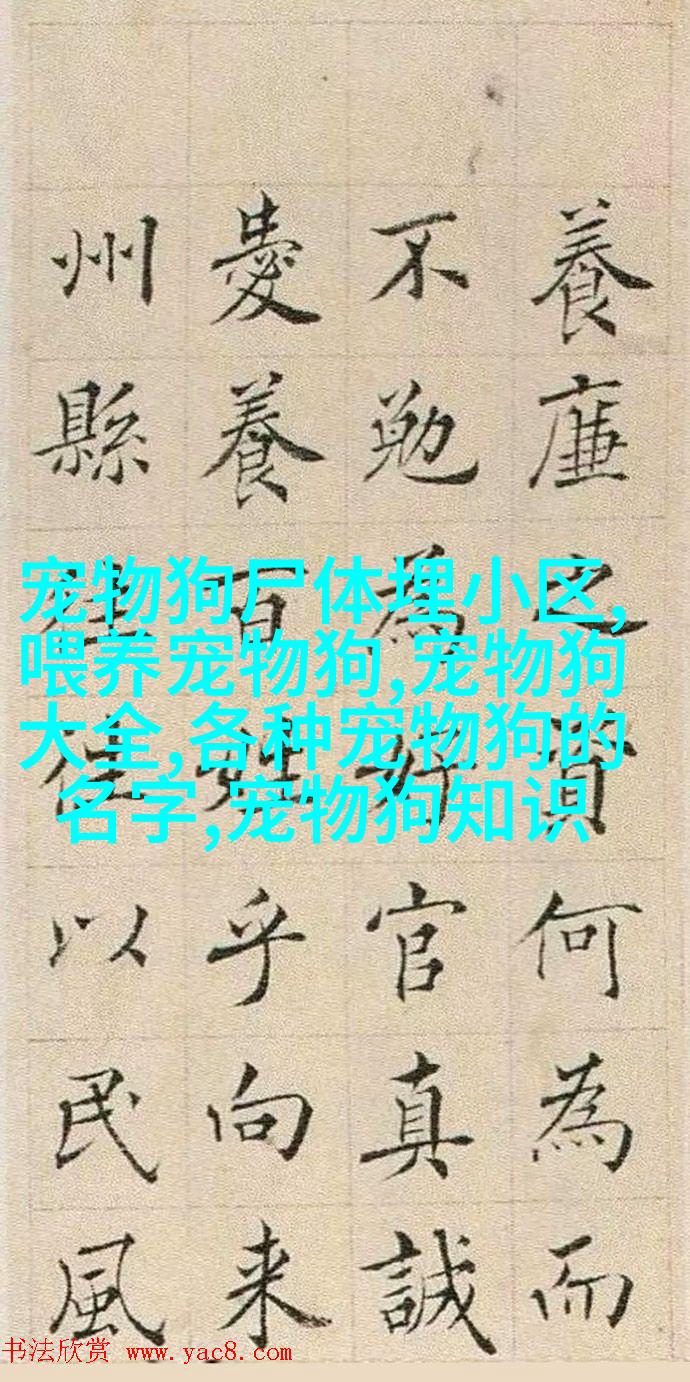 養廉之資何為而
不勉為好官真誠
愛養百姓乎向来
州縣往往以民風
宠物狗尸体埋小区,
喂养宠物狗,宠物狗
大全,各种宠物狗的
名字,宠物狗知识
书法欣赏 www.yac8.com